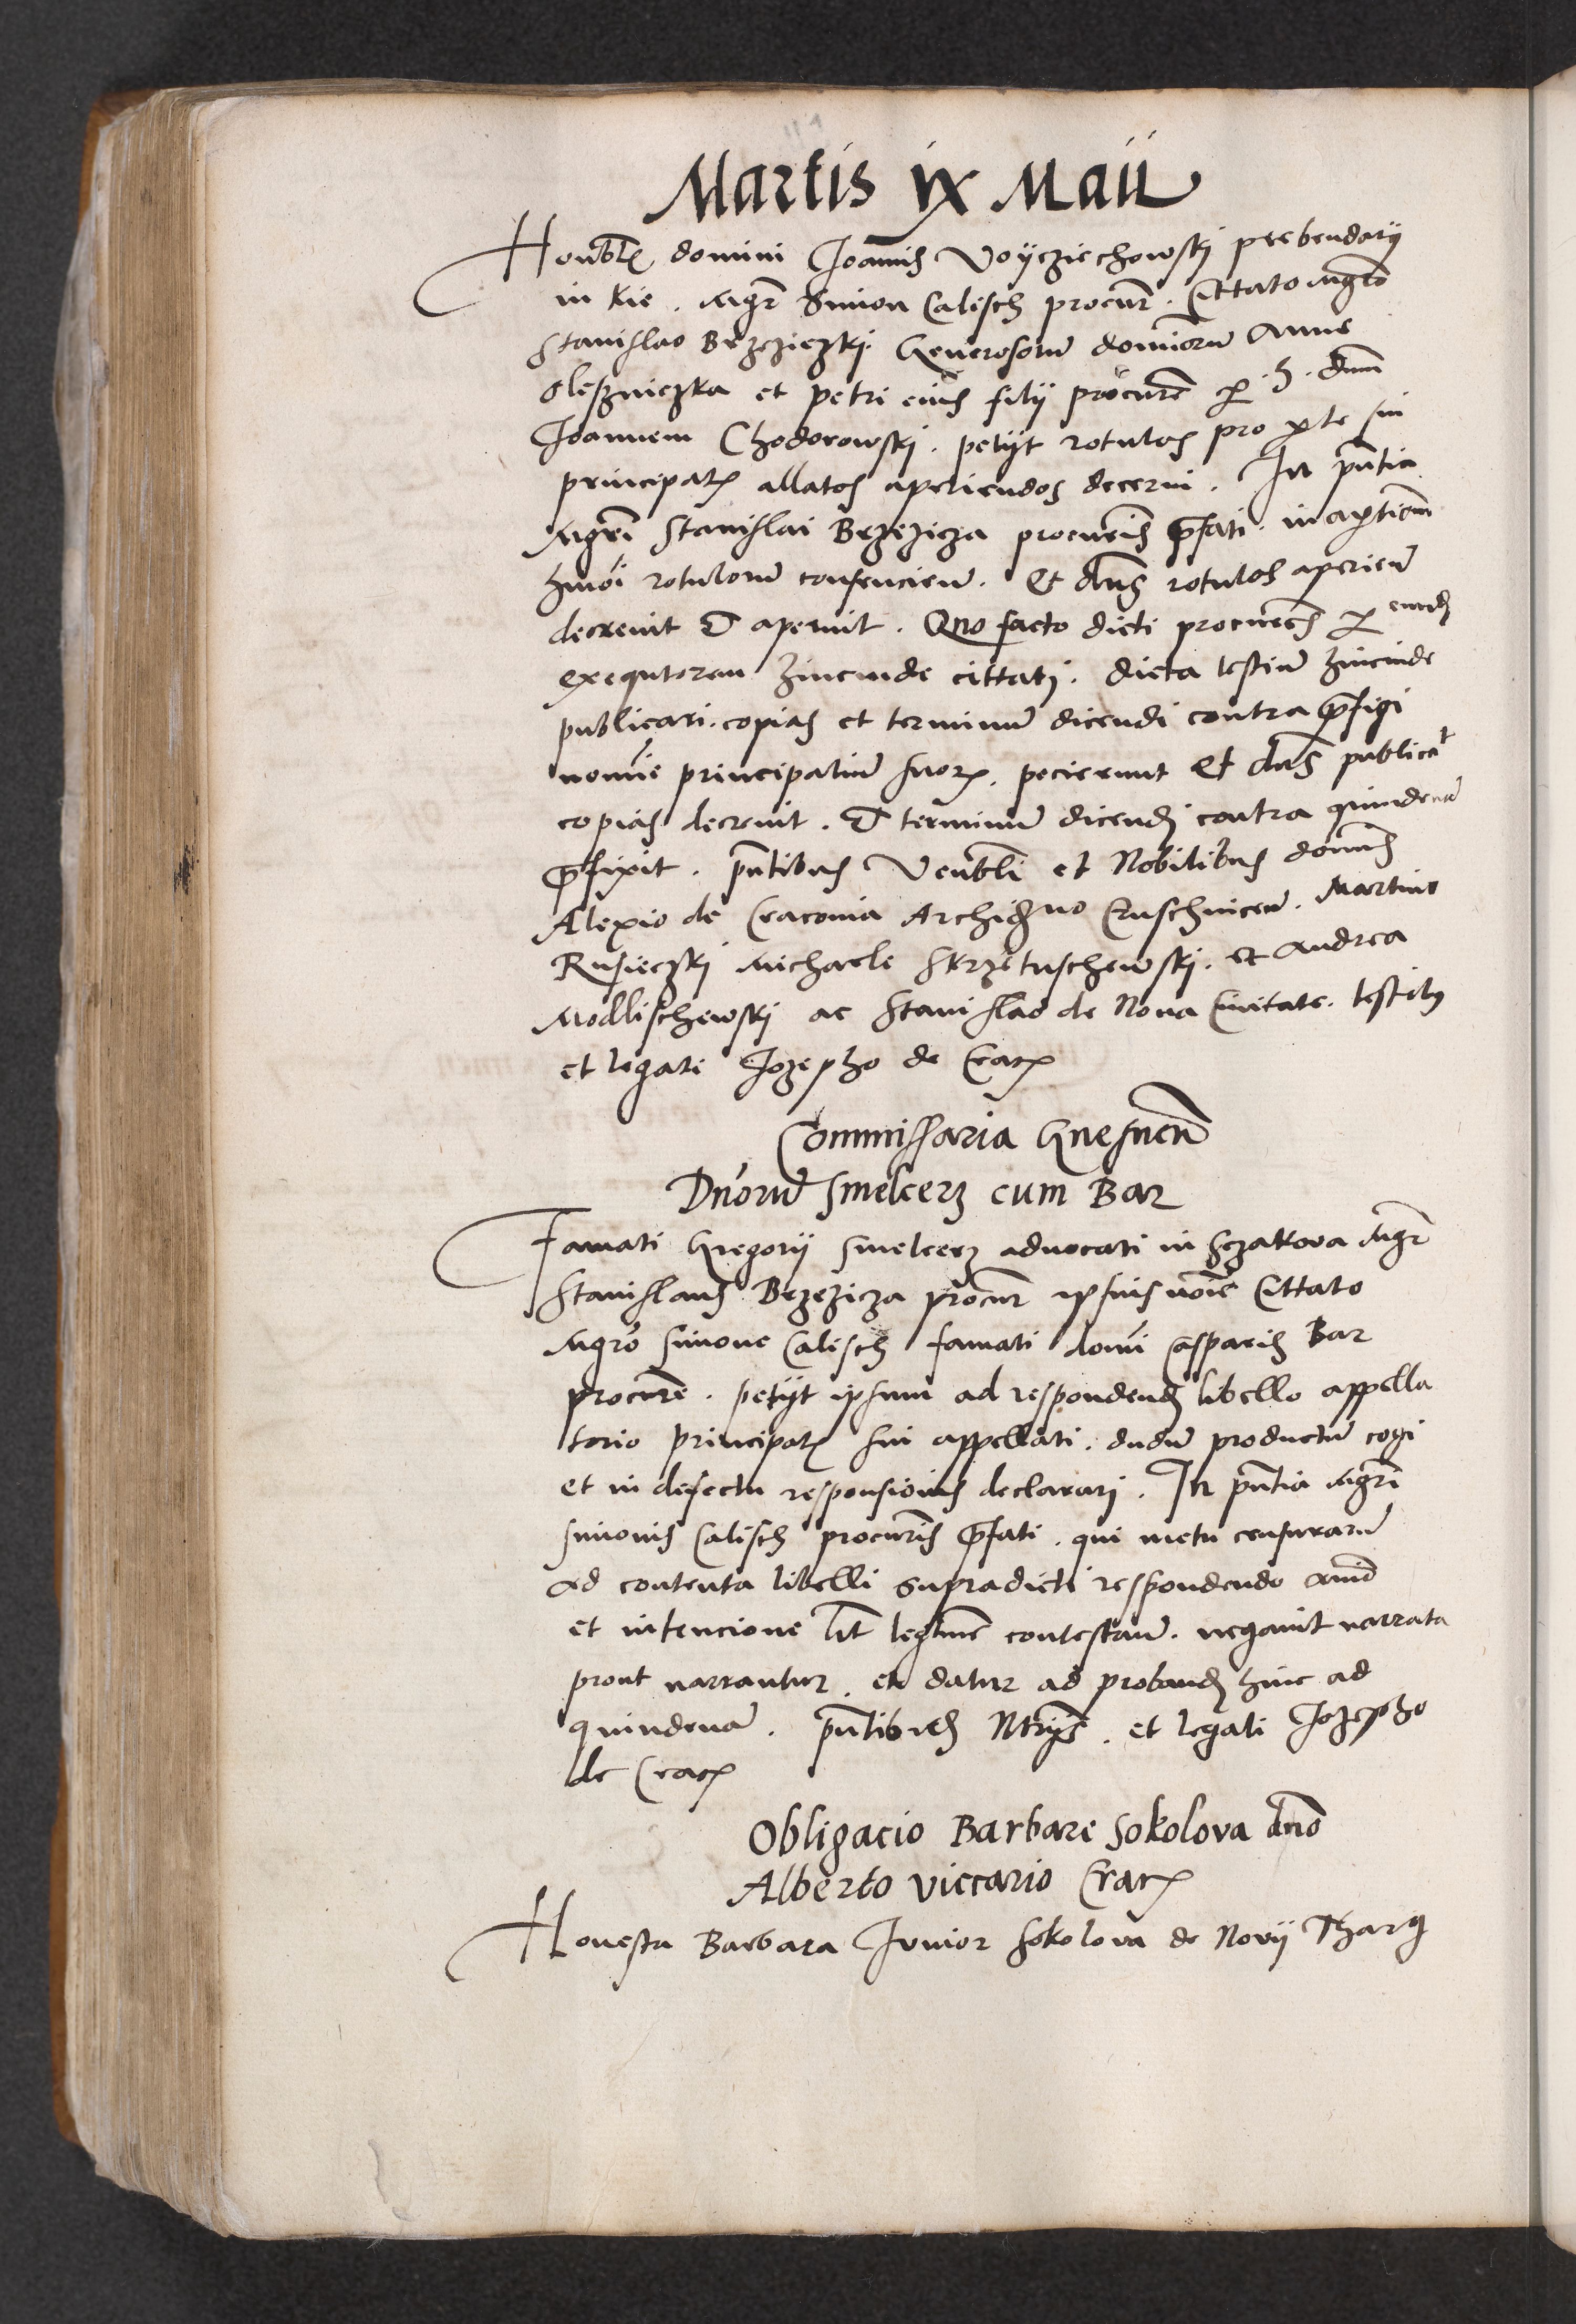 114
Martis ix Maii
Honbl[is] domini Joannis Voycziechowskj prebendarij
in kie. Mgr Simon Calisch procur. Cittato Mgro
Stanislao Brzeziczkj. Generosorum dominorum Anne
Oleszniczka et petri eius filij procure per .h. dnm
Joannem Chodorowskj. petijt rotulos pro parte sui
principalis allatos aperiendos decerni. In pntia
Mgri Stanislai Brzezicza procuris prefati. in apertionem
hmoi rotulorum consencien. Et dns rotulos aperien
decrevit & aperuit. Quo facto dicti procures per eund
exequtorem hincinde cittatj. dicta testium hincinde
publicari. copias et terminum dicendi contra prefigi
nomine principalium suor. pecierunt Et dns publicat
copias decrevit. & terminum dicendj contra quindenam
prefixit. pntibus Venbli et Nobilibus domnis
Alexio de Craconia Archid[iaco]no Cruschvicen. Martino
Rusieczkj Michaele Skrzetuschewskj. et Andrea
Modlischewskj ac Stanislao de Nova Civitate. testibus
et legate Jozepho de Crac
Commissaria Gnesnen
Dnorum Smelcerz cum Bar
Famati Gregorij Smelcerz advocati in Sczakova Mgr
Stanislaus Brzezicza procur ipsius noie Cittato
Mgro Simone Calisch famati domi Casparis Bar
procure. petijt ipsum ad respondend libello appella
torio principalis sui appellati. dudum productum cogi
et in defectu responsionis declararj. In pntia Mgri
Simonis Calisch procuris prefati. qui metu censurarum
ad contenta libelli supradicti respondendo animo
et intencione lit legtme contestan. negavit narrata
prout narrantur. et datur ad proband hinc ad
quindenam. pntibus et legati Jozepho
de Crac
Obligacio Barbare Sokolova dno
Alberto viccario Crac
Honesta Barbara Junior Sokolova de Novij Tharg